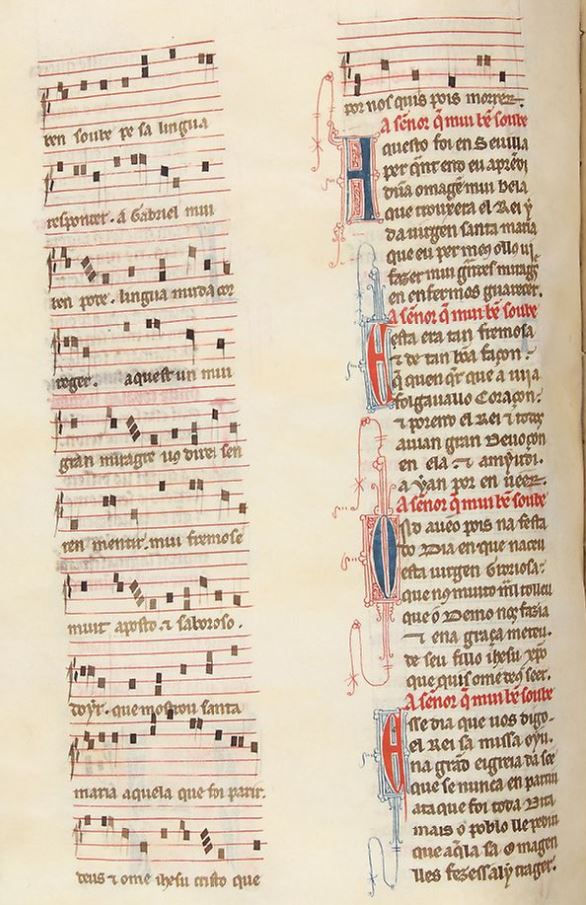 ben soube per sa lingua
responder. a Gabriel mui
ben pode. lingua muda cor
reger. aquest un mui
gran miragre uos direi sen
ren mentir. mui fremose
muit aposto. ⁊ saboroso.
doyr. que mostrou santa
maria aquela que foi parir.
deus ⁊ ome ihesu cristo que
por nos quis pois morrer.
A señor q̄ mui bẽ soube
Aquesto foi en Seuilla
per q̄nt end eu aprẽdi
dũa omagẽ mui bela
que trouxera el Rei y
da uirgen santa maria
que eu per meos ollos ui
fazer mui grãdes miragr̃s
en enfermos guarecer.
A señor q̄ mui bẽ soube
Esta era tan fremosa
⁊ de tan bõa façon.
q̄ quen q̄r que a uija
folgaualle o Coraçon.
⁊ porend el Rei ⁊ todos
auian gran Deuoçon
en ela. ⁊ amyudi.
a yan por en ueer.
A señor q̄ mui bẽ soube
to Dia en que naceu
esta uirgen Gloriosa.
que nos muito mal tolleu
que o Demo nos fazia
⁊ ena graça meteu.
de seu fillo ihesu xp̄o
que quis ome deos seer.
A señor q̄ mui bẽ soube
Esse dia que uos digo.
el Rei sa missa oyu.
na grãd eigreia da see
que se nunca en partiu
ata que foi toda Dita
mais o poblo lle pediu
que aq̄la sa omagen
lles fezess aly trager.